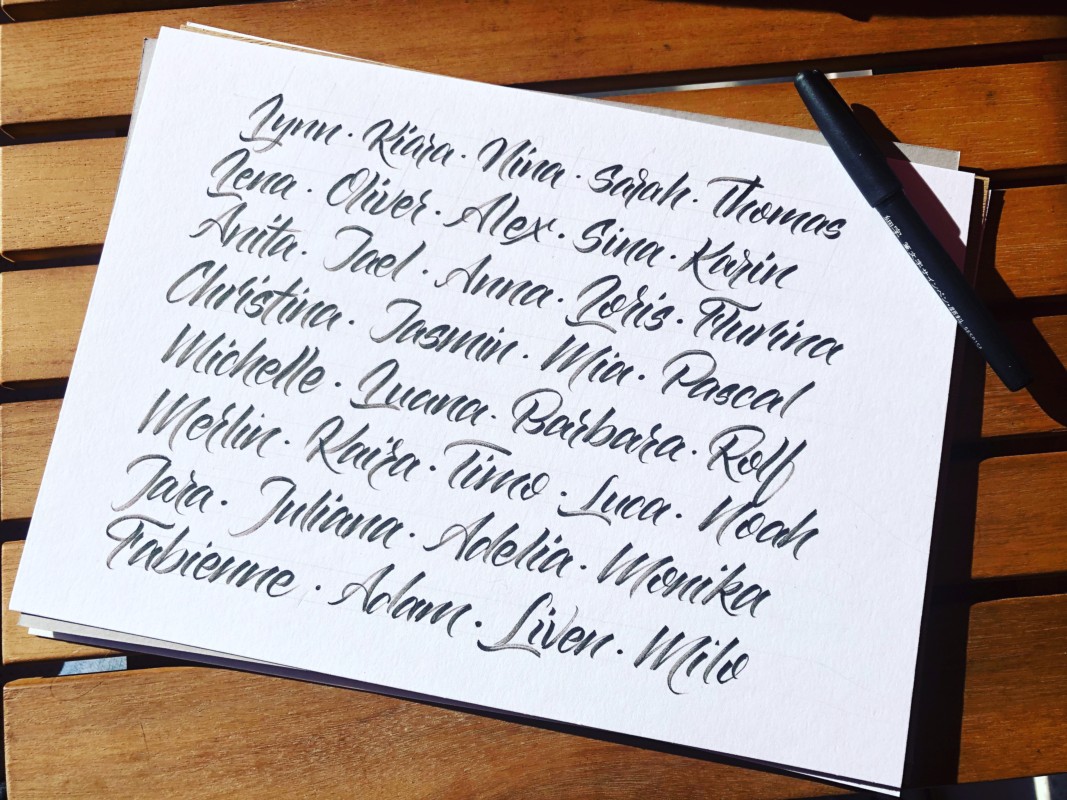 Lynn · Kiara · Nina · Sarah · Thomas
Lena · Oliver · Alex · Sina · Karin
Anita · Jael · Anna · Loris · Flurina
Christina · Jasmin · Mia · Pascal
Michelle · Luana · Barbara · Rolf
Merlin · Kaira · Timo · Luca · Noah
Jara · Juliana · Adelia · Monika
Fabienne · Adam · Liven · Milo